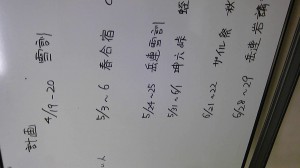 計画
4/19-20 雪訓
5/3~6 春合宿
5/24~25 岳連雪訓
5/31~6/1 坤六峠
6/21~22 ザイル祭 秋
6/28~29 岳連 岩講